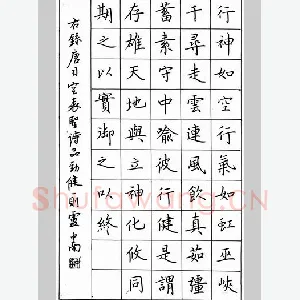 行神如空行氣如虹巫峽
千尋走雲連風飲真茹彊
蓄素守中喻彼行健是謂
存雄天地與立神化攸同
期之以實御之以終
右錄唐司空表聖詩品勁健一則
Shufawang.CN